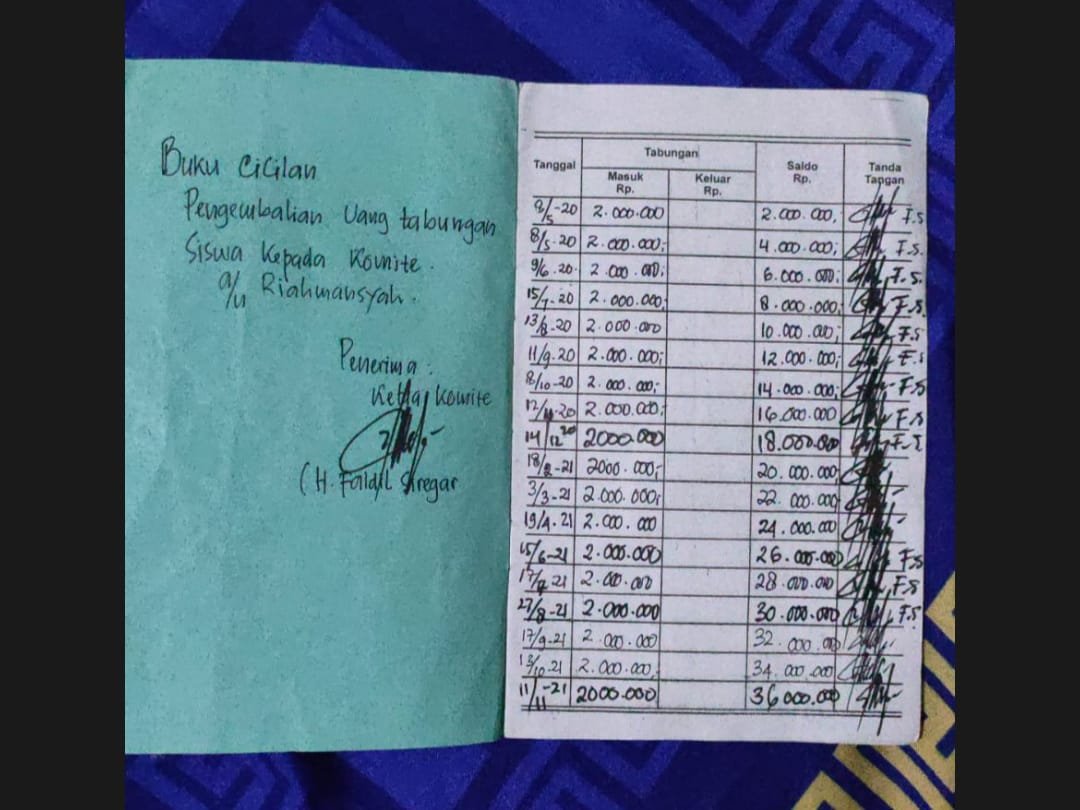 Buku Cicilan
Pengembalian Uang tabungan
Siswa Kepada Komite.
a/n Riahmansyah.
Penerima.
Ketua Komite
(H. Faldil Siregar
Tanggal Tabungan Saldo Rp. Tanda Tangan
Masuk Rp. Keluar Rp.
8/5-20 2.000.000 2.000.000, F.S
8/5.20 2.000.000; 4.000.000; F.S.
9/6.20 2.000.000; 6.000.000; F.S.
15/7.20 2.000.000; 8.000.000; F.S.
13/8.20 2.000.000 10.000.000; F.S
11/9.20 2.000.000; 12.000.000; F.S
8/10-20 2.000.000; 14.000.000; F.S
12/11.20 2.000.000; 16.000.000 F.S
14/12 20 2000.000 18.000.000 F.S
18/2-21 2000.000; 20.000.000;
3/3-21 2.000.000; 22.000.000
19/4.21 2.000.000 24.000.000
15/6-21 2.000.000 26.000.000 F.S
17/7 21 2.000.000 28.000.000 F.S
27/8-21 2.000.000 30.000.000 F.S
17/9-21 2.000.000 32.000.000
13/10.21 2.000.000; 34.000.000
11/11-21 2000.000 36000.000